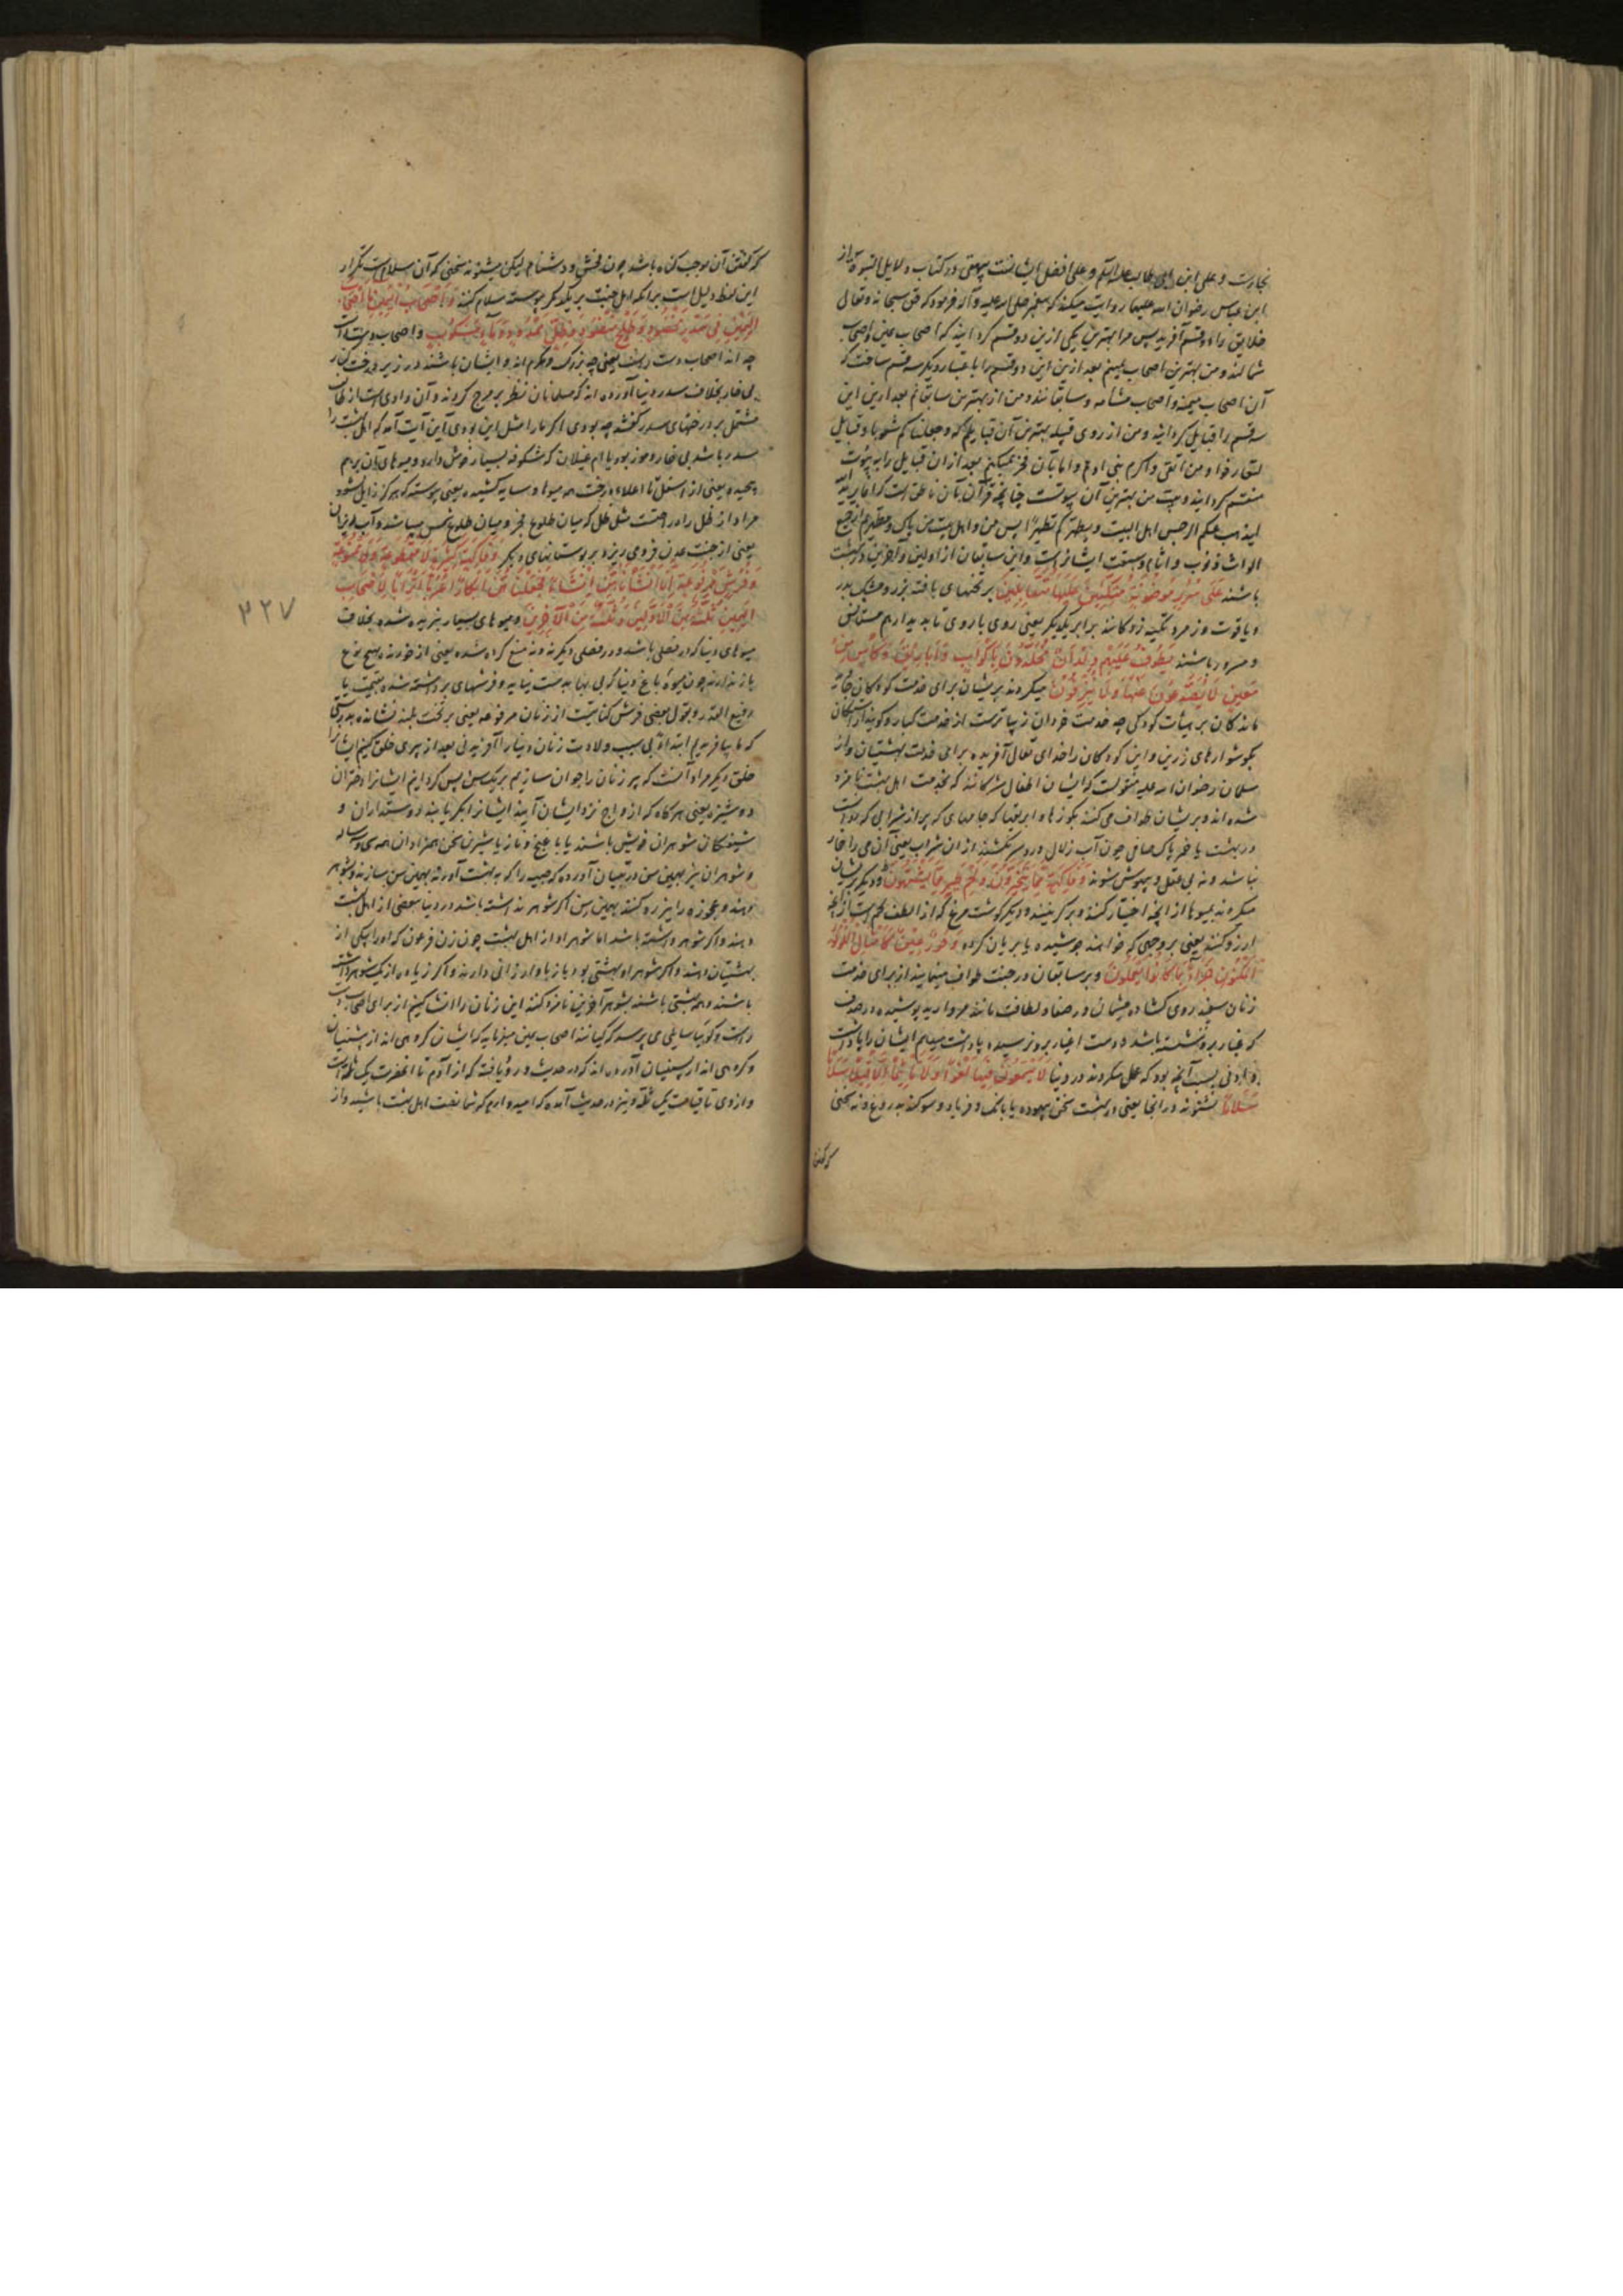 نجارست و علی ابن ابی طالب علیه السلم و علی افضل ایشانست بیهقی در کتاب دلایل النبوة از
ابن عباس رضوان الله علیهما روایت میکند که پیغمبر صلی الله علیه و آله فرمود که حق سبحانه و تعالی
خلایق را دو قسم آفرید پس مرا بهترین یکی ازین دو قسم گردانید که اصحاب یمین و اصحاب
شمالند و من بهترین اصحاب یمینم بعد ازین این دو قسم را باعتبار دیگر سه قسم ساخت که
آن اصحاب میمنه و اصحاب مشامه و سابقانند و من از بهترین سابقانم بعد ازین این
سه قسم را قبایل گردانید و من از روی قبیله بهترین آن قبایلم که و جعلناکم شعوبا و قبایل
لتعارفوا و من اتقی و اکرم بنی ادم و اما بآن فخر نمیکنم بعد از ان قبایل را به بیوت
منقسم گردانید و بیت من بهترین آن بیوتست چنانچه قرآن بآن ناطق است که انما یرید الله
لیذهب عنکم الرجس اهل البیت و یطهرکم تطهیرا پس من و اهل بیت من پاک و مطهریم از جمیع
الواث ذنوب و اثام و سبقت ایشانراست و این سابقان از اولین و آخرین در بهشت
باشند علی سرر موضونة متکئین علیها متقابلین بر تختهای بافته بزر و مشبک بدر
و یاقوت و زمرد تکیه زدکانند برابر یکدیکر یعنی روی با روی تا بدیدار هم مستانس
و مسرور باشند یطوف علیهم ولدان مخلدون باکواب و اباریق و کاس من
معین لا یصدعون عنها و لا ینزفون میکردند بریشان برای خدمت کودکان جاوید
ماندکان بر هیأت کودکی چه خدمت خردان زیباترست از خدمت کبار و کویند آراستکان
بکوشوارهای زرین و این کودکان را خدای تعالی آفریده برای خدمت بهشتیان و از
سلمان رضوان الله علیه منقولست که ایشان اطفال مشرکانند که بخدمت اهل بهشت نامزد
شده اند و بریشان طواف می کنند بکوزها و ابریقها که جامهای که پر از شرابی که روانست
در بهشت یا خمر پاک صافی چون آب زلال و دردسر نکشند از ان شراب یعنی آن می را خمار
نباشد و نه بی عقل و بیهوش شوند و فاکهة مما یتخیرون و لحم طیر مما یشتهون و دیکر بریشان
میکردند بمیوها از انچه اختیار کنند و برکزینند و دیکر کوشت مرغ که از الطف لحم است از انچه
ارزو کنند یعنی بر وجهی که خواهند جوشیده یا بریان کرده و حور عین کامثال اللؤلؤ
المکنون جزاء بما کانوا یعملون و بر سابقان در جنت طواف مینمایند از برای خدمت
زنان سفید روی کشاده چشمان در صفا و لطافت مانند مروارید پوشیده در صدف
که غبار برو ننشسته باشد و دست اغیار برو نرسیده پاداشت میدهیم ایشان را پاداشت
دادنی بسبب آنچه بود که عمل میکردند در دنیا لا یسمعون فیها لغوا و لا تاثیما الا قیلا سلاما
سلاما نشنوند در انجا یعنی در بهشت سخن بیهوده یا بانک و فریاد و سوکند بدروغ و نه سخنی
که گفتن
که گفتن آن موجب کناه باشد چون فحش و دشنام لیکن بشنوند سخنی که آن سلام است تکرار
این لفظ دلیل است بر انکه اهل جنت بر یکدیکر پیوسته سلام کنند و اصحاب الیمین ما اصحاب
الیمین فی سدر مخضود و طلح منضود و ظل ممدود و ماء مسکوب و اصحاب دست راست
چه اند اصحاب دست راست یعنی چه بزرک و مکرم اند و ایشان باشند در زیر درخت کنار
بی خار بخلاف سدر دنیا آورده اند که مسلمانان نظر بر مرج کردند و آن وادی است از طایف
مشتمل بر درختهای سدر کفتند چه بودی اکر ما را مثل این بودی آین آیت آمد که اهل بهشت را
سدر باشد بی خار و موز بود یا ام غیلان که شکوفه بسیار خوش دارد و میوهای آن برهم
پیچیده یعنی از اسفل تا اعلاء درخت همه میوها و سایه کشیده یعنی پیوسته که هرکز زایل نشود
مراد از ظل راه راحتست مثل ظل که میان طلوع فجر و میان طلوع شمس میباشد و آب ریزان
یعنی از جنت عدن فرو می ریزد بر بوستانهای دیکر و فاکهة کثیرة لا مقطوعة و لا ممنوعة
و فرش مرفوعة انا انشاناهن انشاء فجعلناهن ابکارا عربا اترابا لاصحاب
الیمین ثلة من الاولین و ثلة من الآخرین و میوهای بسیار نبریده شده بخلاف
۳۲۷
میوهای دنیا که در فصلی باشد و در فصلی دیکر نه و نه منع کرده شده یعنی از خورنده بهیچ نوع
باز ندارند چون میوه باغ دنیا که بی بها بدست نیاید و فرشهای برداشته شده بقیمت یا
رفیع القدر و بقول بعضی فرش کنایتست از زنان مرفوعه یعنی بر تخت بلند نشانده بدرستی
که ما بیافریدیم ابتداءً بی سبب ولادت زنان دنیا را آفریدنی بعد از پیری خلق کنیم ایشانرا
خلق دیکر مراد آنست که پیر زنان را جوان سازیم بر یک سن پس کردانیم ایشانرا دختران
دوشیزه یعنی هرکاه که ازواج نزد ایشان آیند ایشانرا بکر یابند دوستداران و
شیفتکان شوهران خویش باشند یا با غنج و ناز یا شیرین سخن همزادان همه سی و سه ساله
و شوهران نیز بهمین سن در تبیان آورده که صبیه را که به بهشت آورند بهمین سن سازند و بشوهر
دهند و عجوزه را نیز رد کنند بهمین سن اکر شوهر نداشته باشد در دنیا ببعضی از اهل بهشت
دهند و اکر شوهر داشته باشد اما شوهر او از اهل بهشت چون زن فرعون که او را بیکی از
بهشتیان دهند و اکر شوهر او بهشتی بود باز باو ارزانی دارند و اکر زیاده از یک شوهر داشته
باشند و همه بهشتی باشند بشوهر آخرین نامزد کنند این زنان را انشا کنیم از برای اصحاب دست
راست و کوییا سایلی می پرسد که کیانند اصحاب یمین میفرماید که ایشان کروهی اند از پیشینیان
و کروهی اند از پسینیان آورده اند که در حدیث ورود یافته که از آدم تا انحضرت یک ثله است
و از وی تا قیامت یک ثله و نیز در حدیث آمده که امیدوارم که شما نصف اهل بهشت باشید و از